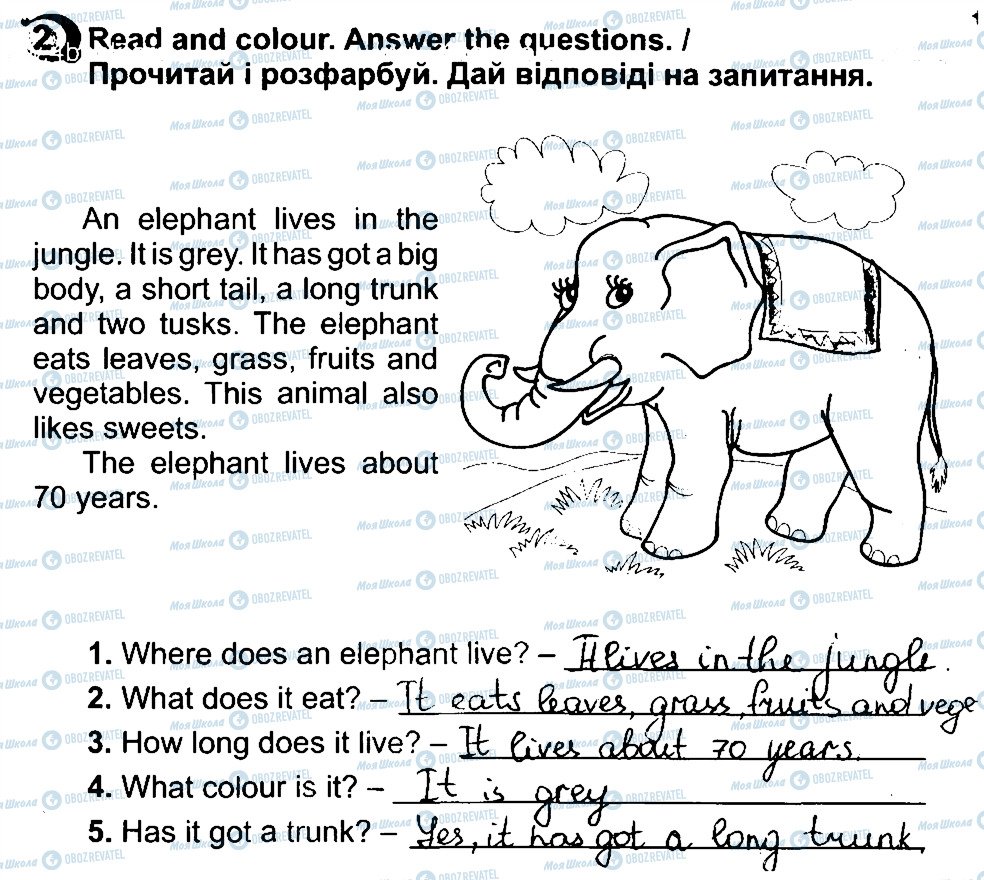 2 Read and colour. Answer the questions. /
Прочитай і розфарбуй. Дай відповіді на запитання.
An elephant lives in the
jungle. It is grey. It has got a big
body, a short tail, a long trunk
and two tusks. The elephant
eats leaves, grass, fruits and
vegetables. This animal also
likes sweets.
The elephant lives about
70 years.
1. Where does an elephant live? – It lives in the jungle.
2. What does it eat? – It eats leaves, grass, fruits and vege
3. How long does it live? – It lives about 70 years.
4. What colour is it? – It is grey
5. Has it got a trunk? – Yes, it has got a long trunk.
Моя Школа OBOZREVATEL